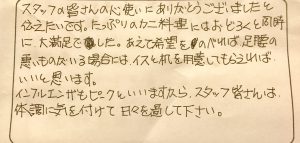 スタッフの皆さんの心使いにありがとうございましたと
伝えたいです。たっぷりのカニ料理にはおどろくと同時
に大満足でした。あえて希望をのべれば、足腰の
悪いものがいる場合には、イスと机を用意してもらえれば
いいと思います。
インフルエンザもピークといいますから、スタッフ皆さんは、
体調に気を付けて日々を過して下さい。